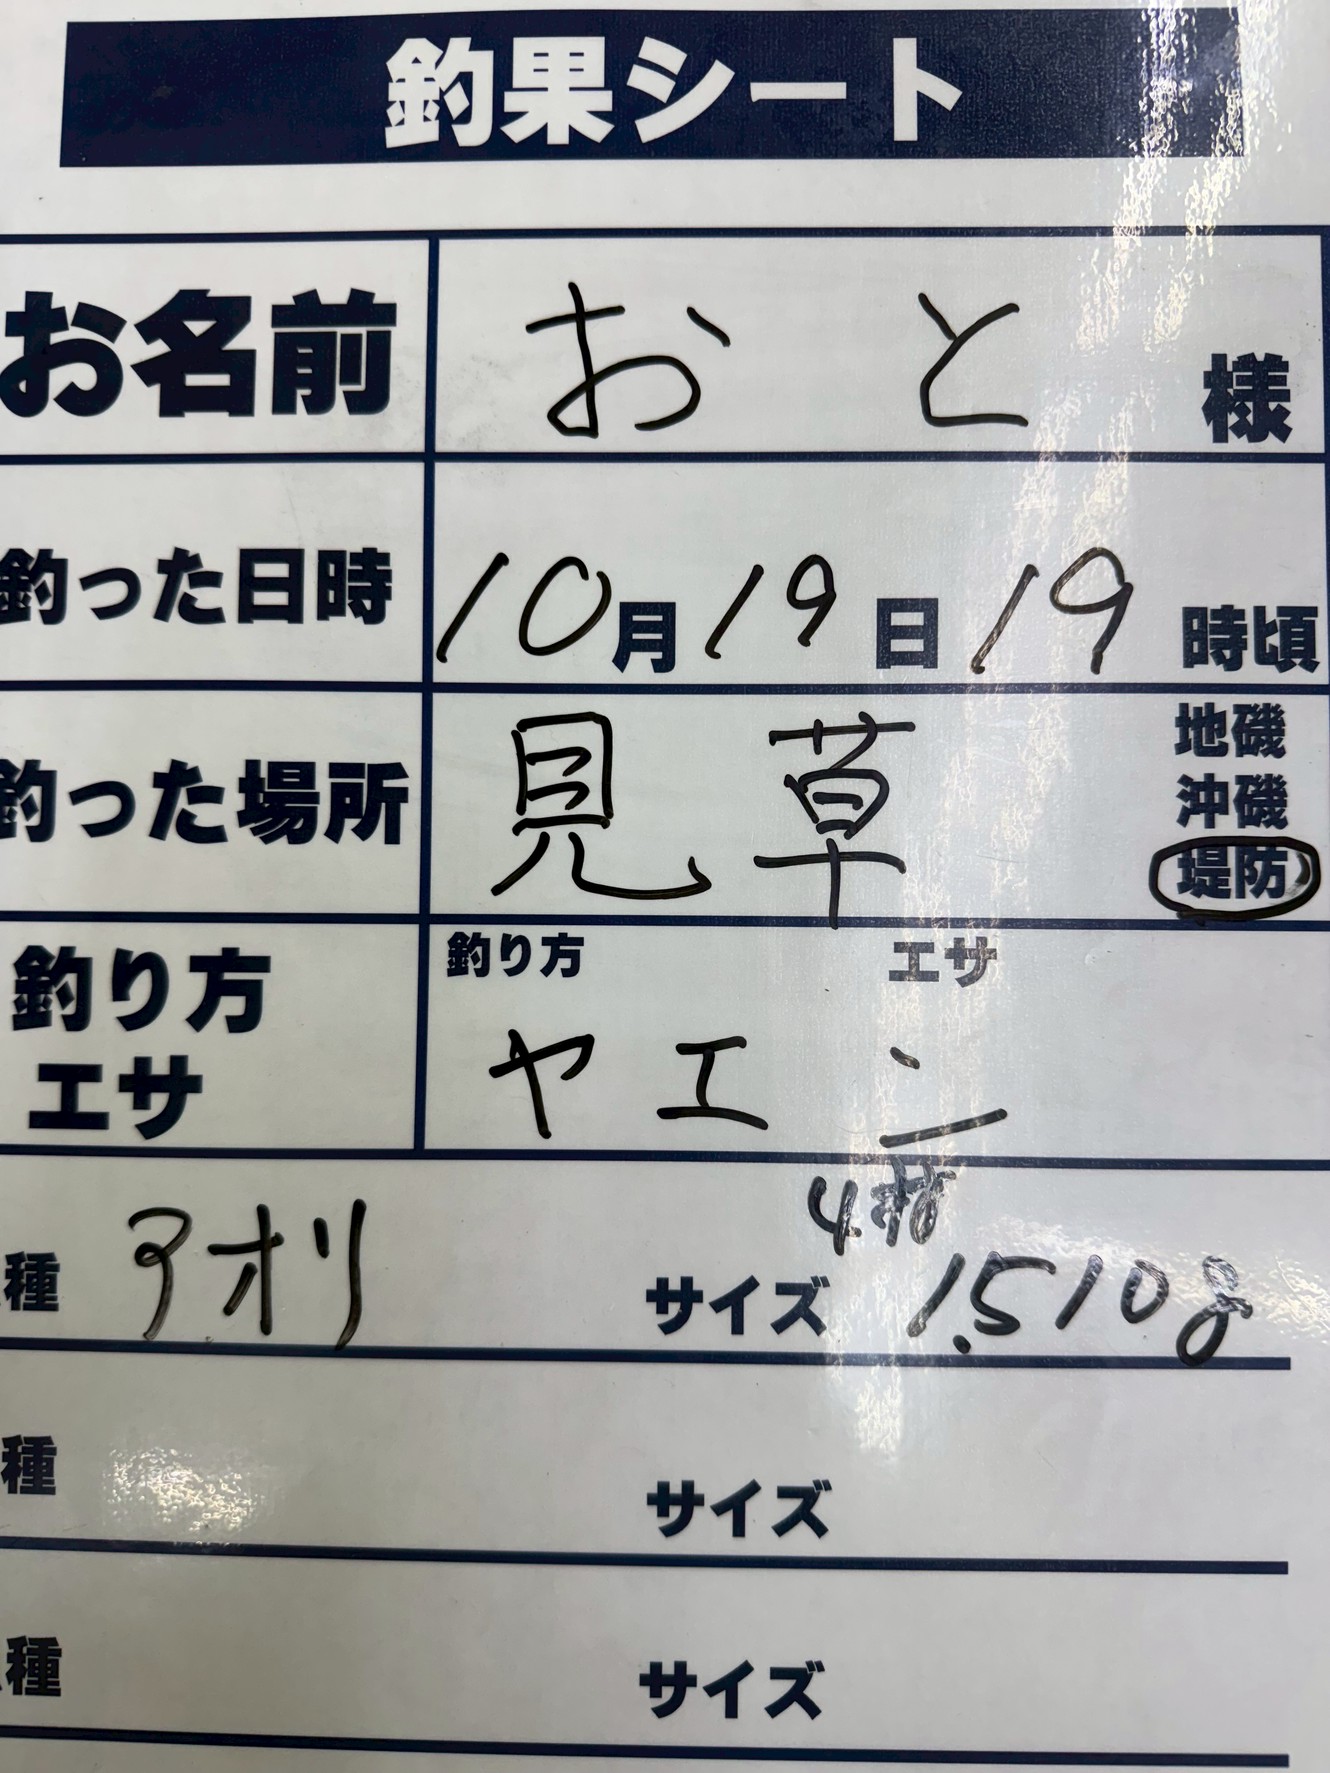 釣果シート
お名前 おと 様
釣った日時 10月19日19時頃
釣った場所 見草 地磯
沖磯
堤防
釣り方 エサ
釣り方
エサ
ヤエン
種 アオリ サイズ 1.510g
種 サイズ
種 サイズ